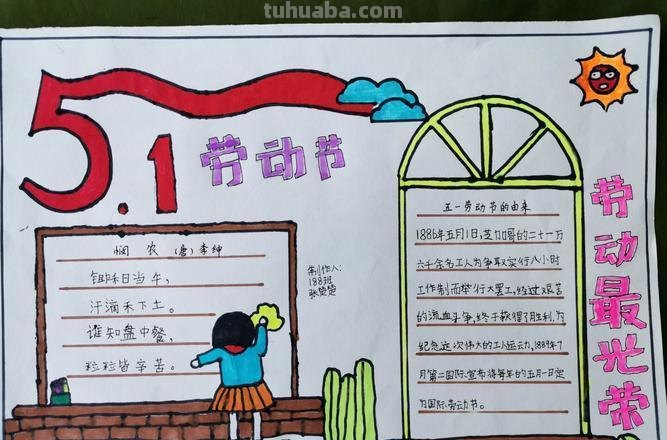 tuhuaba.com
5.1
劳动节
悯 农 (唐)李绅
锄禾日当午,
汗滴禾下土。
谁知盘中餐,
粒粒皆辛苦。
制作人:
188班
五一劳动节的由来
1886年五月1日,芝加哥的二十一万
六千余名工人为争取实行八小时
工作制而举行大罢工,经过艰苦
的流血斗争,终于获得了胜利,为
纪念这次伟大的工人运动,1889年7
月第二国际宣布将每年的五月一日定
为国际劳动节。
劳动最光荣